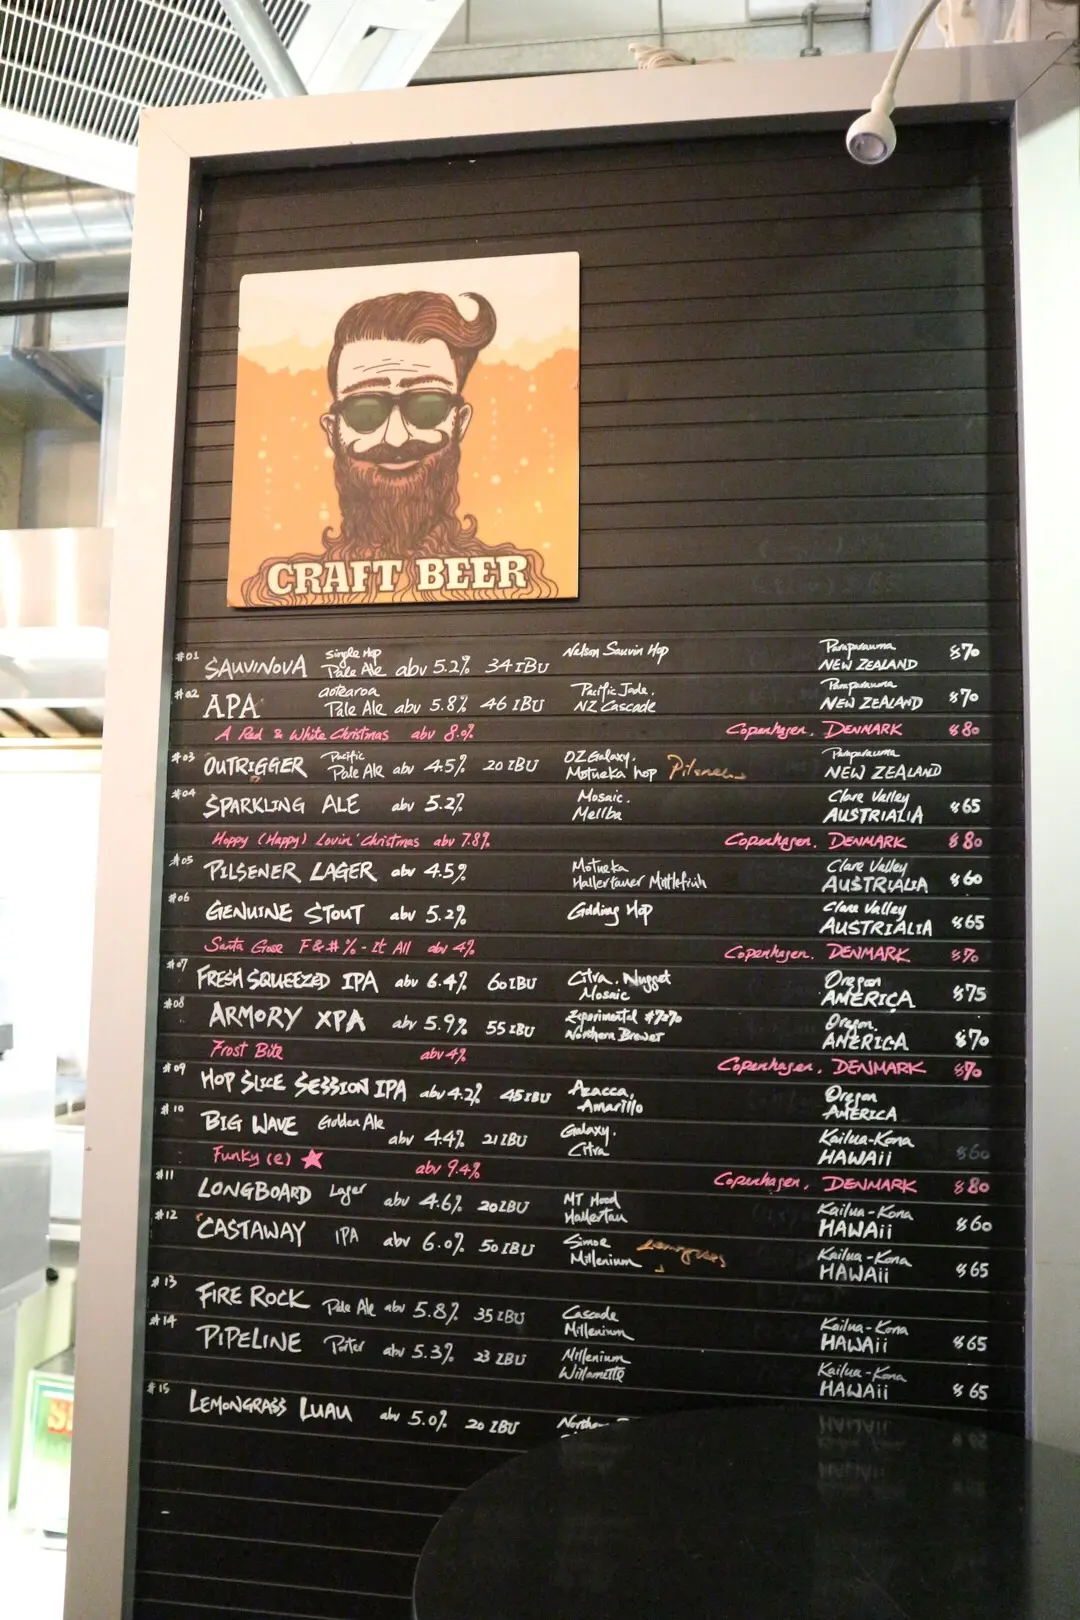 CRAFT BEER
#01 SAUVINOVA Single Hop Pale Ale abv 5.2% 34 IBU Nelson Sauvin Hop Paraparauma NEW ZEALAND $70
#02 APA aotearoa Pale Ale abv 5.8% 46 IBU Pacific Jade. NZ Cascade Paraparauma NEW ZEALAND $70
A Red & White Christmas abv 8.0% Copenhagen, DENMARK $80
#03 OUTRIGGER Pacific Pale Ale abv 4.5% 20 IBU OZ Galaxy. Motueka hop Pilsener Paraparauma NEW ZEALAND
#04 SPARKLING ALE abv 5.2% Mosaic. Mellba Clare Valley AUSTRIALIA $65
Hoppy (Happy) Lovin' Christmas abv 7.8% Copenhagen. DENMARK $80
#05 PILSENER LAGER abv 4.5% Motueka Hallertauer Mittlefrüh Clare Valley AUSTRIALIA $60
#06 GENUINE STOUT abv 5.2% Golding Hop Clare Valley AUSTRIALIA $65
Santa Gose F&#%-It All abv 4% Copenhagen. DENMARK $70
#07 FRESH SQUEEZED IPA abv 6.4% 60 IBU Citra. Nugget Mosaic Oregon AMERICA $75
#08 ARMORY XPA abv 5.9% 55 IBU Experimental #7270 Northern Brewer Oregon. AMERICA $70
Frost Bite abv 4% Copenhagen, DENMARK $70
#09 HOP SLICE SESSION IPA abv 4.2% 45 IBU Azacca, Amarillo Oregon AMERICA
#10 BIG WAVE Golden Ale abv 4.4% 21 IBU Galaxy. Citra Kailua-Kona HAWAii $60
Funky (e) ★ abv 9.4% Copenhagen, DENMARK $80
#11 LONGBOARD Lager abv 4.6% 20 IBU MT Hood Hallertau Kailua-Kona HAWAii $60
#12 CASTAWAY IPA abv 6.0% 50 IBU Simoe Millenium Lemongrass Kailua-Kona HAWAii $65
#13 FIRE ROCK Pale Ale abv 5.8% 35 IBU Cascade Millenium Kailua-Kona HAWAii $65
#14 PIPELINE Porter abv 5.3% 23 IBU Millenium Willamette Kailua-Kona HAWAii $65
#15 LEMONGRASS LUAU abv 5.0% 20 IBU